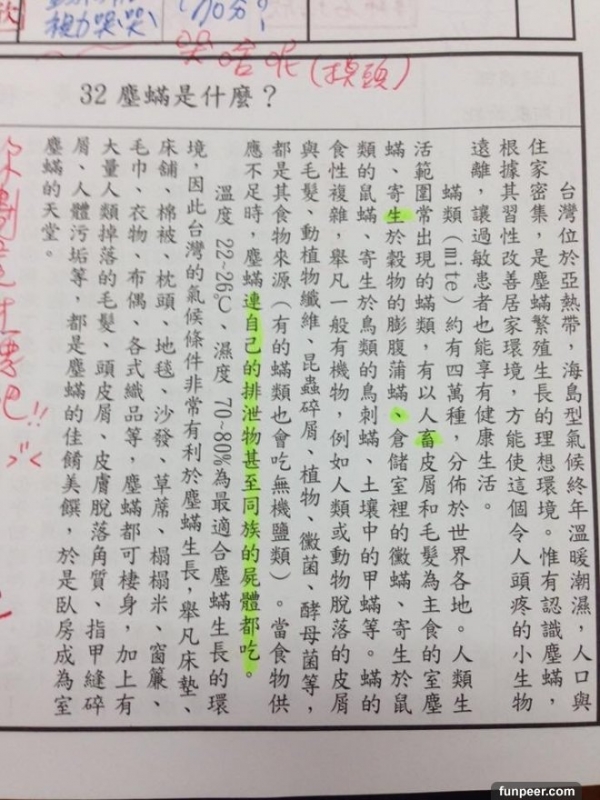 視力哭哭
70分?
哭啥呢(摸頭)
32 塵蟎是什麼？
台灣位於亞熱帶，海島型氣候終年溫暖潮濕，人口與
住家密集，是塵蟎繁殖生長的理想環境。惟有認識塵蟎，
根據其習性改善居家環境，方能使這個令人頭疼的小生物
遠離，讓過敏患者也能享有健康生活。
蟎類（mite）約有四萬種，分佈於世界各地。人類生
活範圍常出現的蟎類，有以人畜皮屑和毛髮為主食的室塵
蟎、寄生於穀物的膨腹蒲蟎、倉儲室裡的黴蟎、寄生於鼠
類的鼠蟎、寄生於鳥類的鳥刺蟎、土壤中的甲蟎等。蟎的
食性複雜，舉凡一般有機物，例如人類或動物脫落的皮屑
與毛髮、動植物纖維、昆蟲碎屑、植物、黴菌、酵母菌等，
都是其食物來源（有的蟎類也會吃無機鹽類）。當食物供
應不足時，塵蟎連自己的排泄物甚至同族的屍體都吃。
溫度 22~26℃、濕度 70~80%為最適合塵蟎生長的環
境，因此台灣的氣候條件非常有利於塵蟎生長，舉凡床墊、
床舖、棉被、枕頭、地毯、沙發、草蓆、榻榻米、窗簾、
毛巾、衣物、布偶、各式織品等，塵蟎都可棲身，加上有
大量人類掉落的毛髮、頭皮屑、皮膚脫落角質、指甲縫碎
屑、人體污垢等，都是塵蟎的佳餚美饌，於是臥房成為室
塵蟎的天堂。
吧!!
funpeer.com